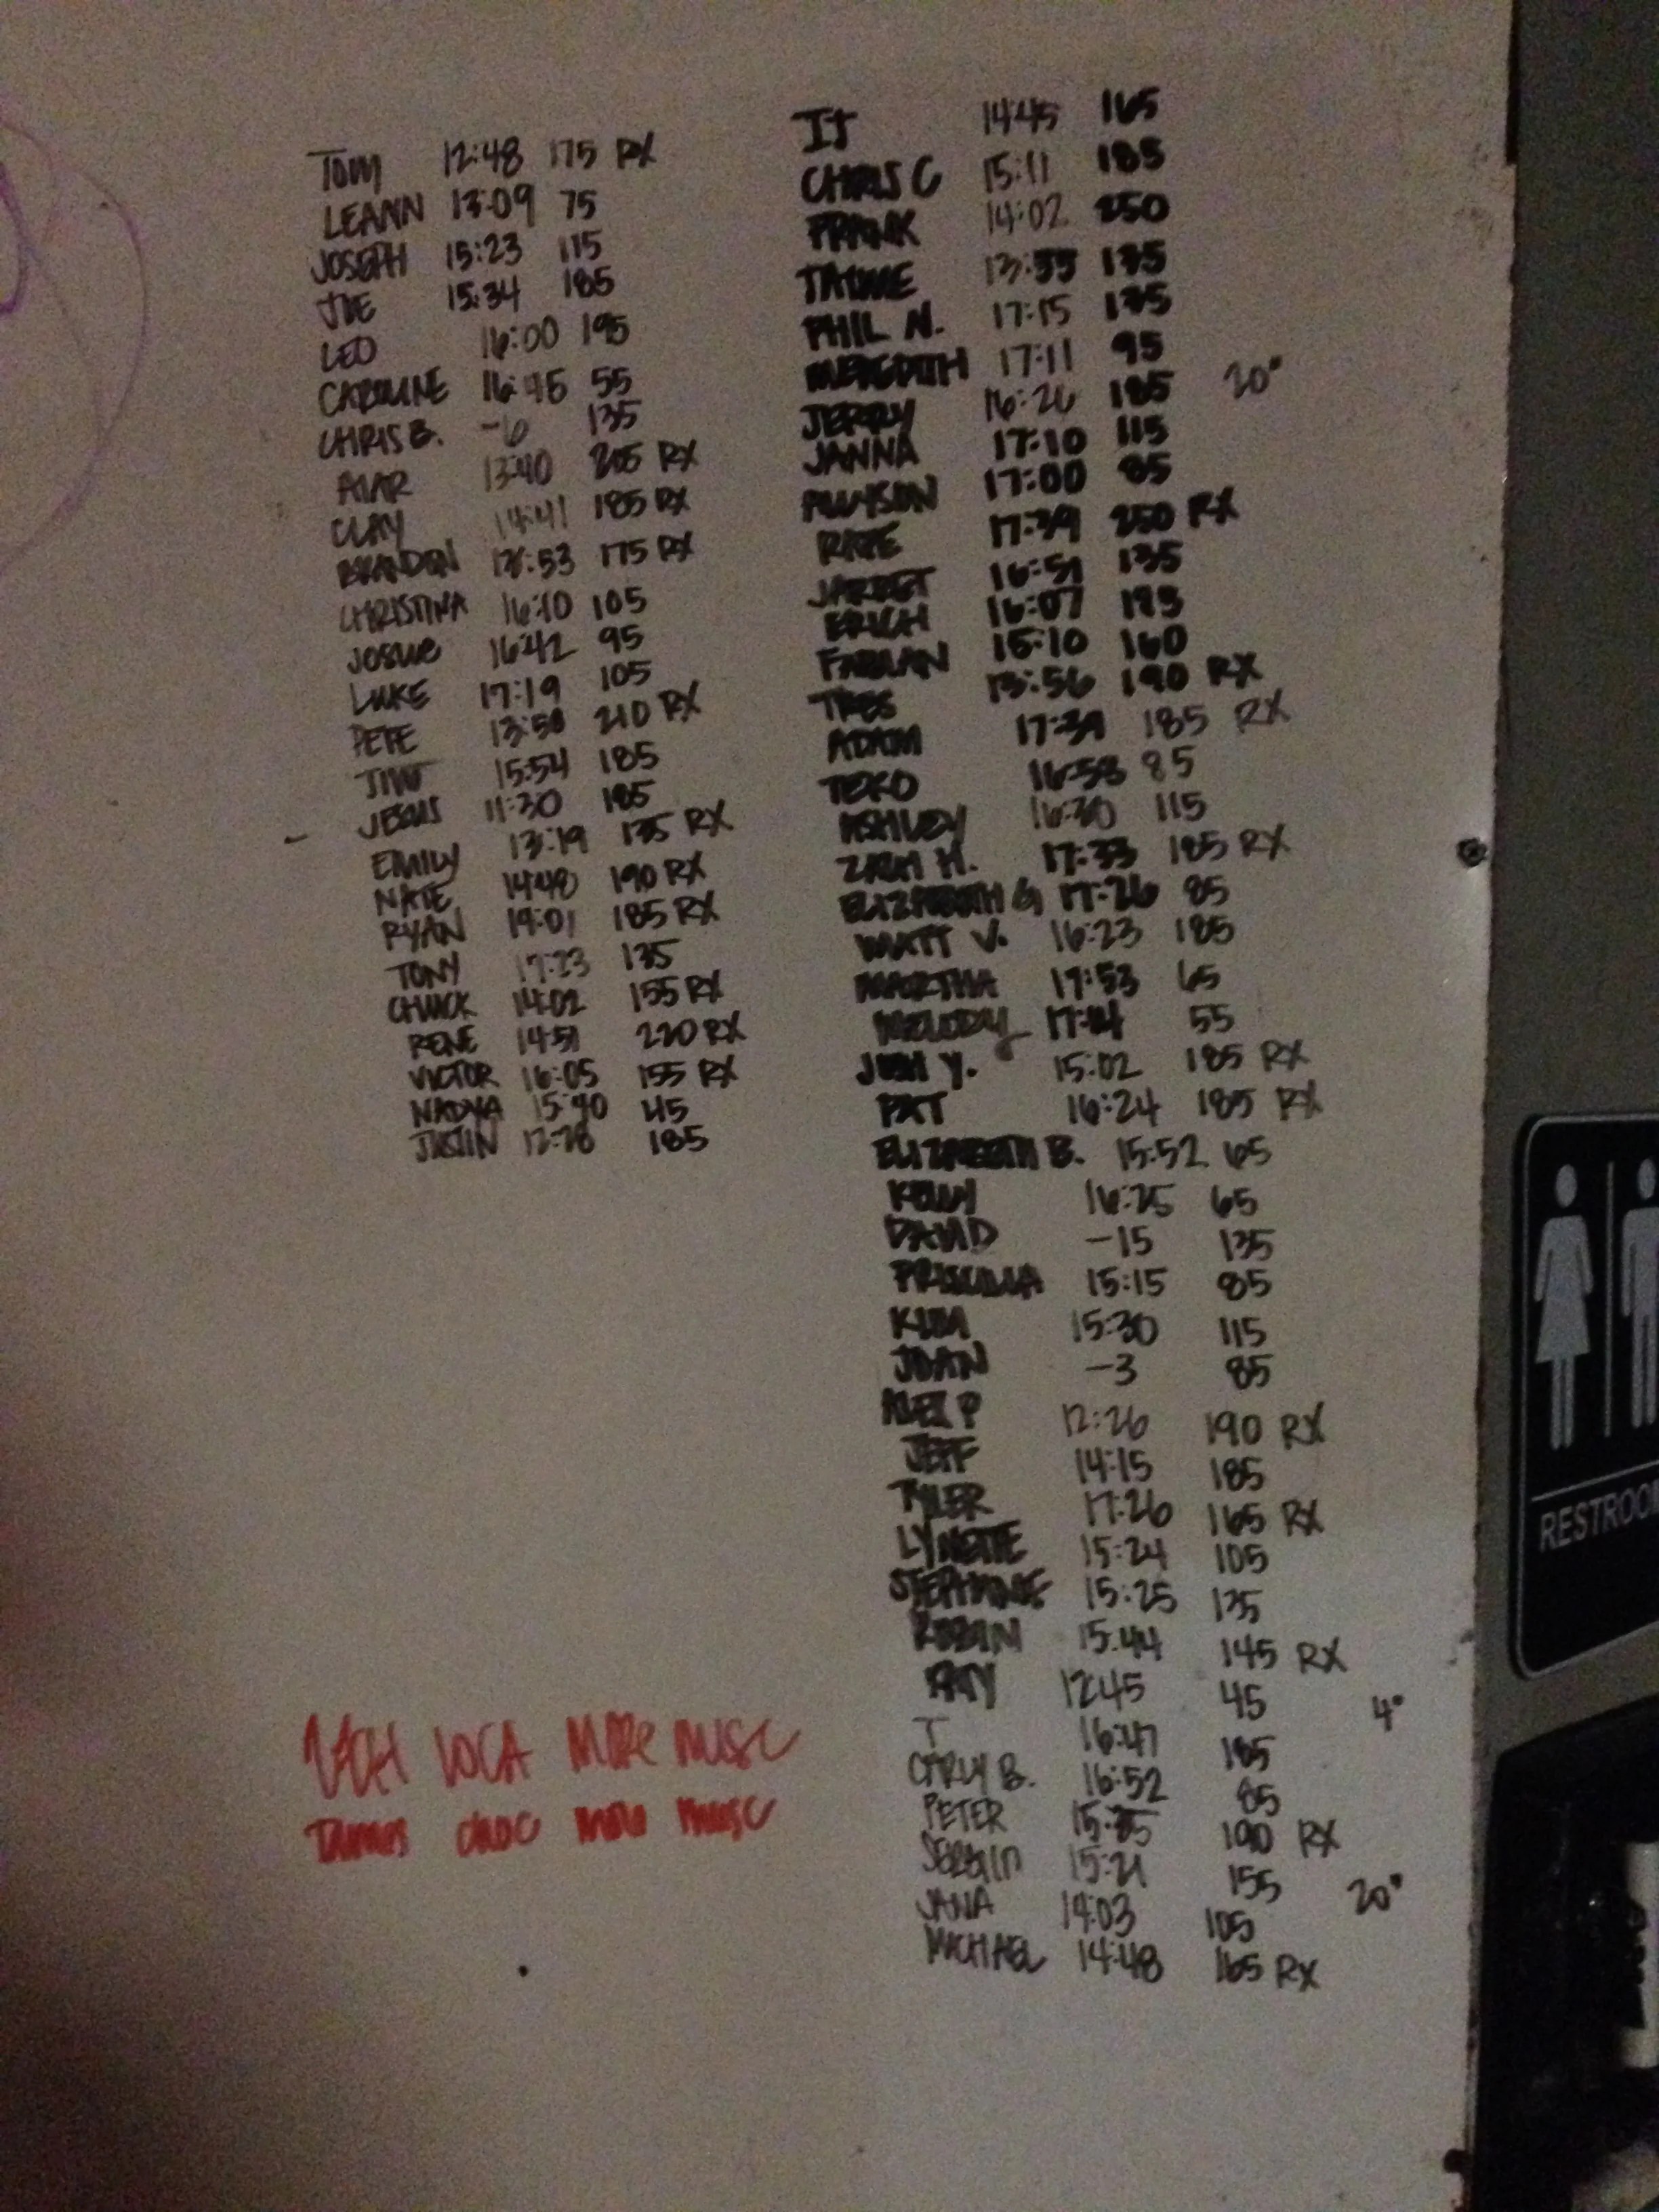 TOM 12:48 175 RX
LEANN 13:09 75
JOSEPH 15:23 115
JOE 15:34 185
LEO 16:00 195
CAROLINE 16:45 55
CHRIS B. -6 135
13:40 205 RX
CLAY 14:41 185 RX
BRANDON 175 RX
CHRISTINA 16:10 105
JOSUE 16:42 95
LUKE 17:19 105
PETE 13:50 210 RX
15:54 185
JESUS 11:30 185
EMILY 13:19 135 RX
NATE 14:48 190 RX
RYAN 185 RX
TONY 17:23 135
CHUCK 14:02 155 RX
RENE 14:51 220 RX
VICTOR 16:05 155 RX
NADYA 15:40 45
JUSTIN 12:28 185
JJ 14:45 165
CHRIS C 15:11 185
FRANK 14:02 250
13:55 135
PHIL N. 17:15 135
MEREDITH 17:11 95
JERRY 16:26 185 20"
JANNA 17:10 115
ALLYSON 17:00 85
17:39 250 RX
16:51 135
ERICH 16:07 185
FABIAN 15:10 160
TRES 13:56 190 RX
ADAM 17:39 185 RX
16:58 85
ASHLEY 16:30 115
ZACH H. 17:33 185 RX
ELIZABETH G 17:26 85
MATT V. 16:23 185
MARTHA 17:53 65
MELODY 17:14 55
JOSH Y. 15:02 185 RX
PAT 16:24 185 RX
ELIZABETH B. 15:52 65
KELLY 16:25 65
DAVID -15 135
PRISCILLA 15:15 85
KIM 15:30 115
JOAN -3 85
ALEX P 12:26 190 RX
JEFF 14:15 185
TYLER 17:26 165 RX
LYNETTE 15:24 105
STEPHANIE 15:25 135
ROBIN 15:44 145 RX
12:45 45 4"
T 16:47 185
CARLY B. 16:52 85
PETER 190 RX
SERGIO 15:21 155 20"
JANA 14:03 105
MICHAEL 14:48 165 RX
LOCA MORE MUSC
MUSC
RESTROO